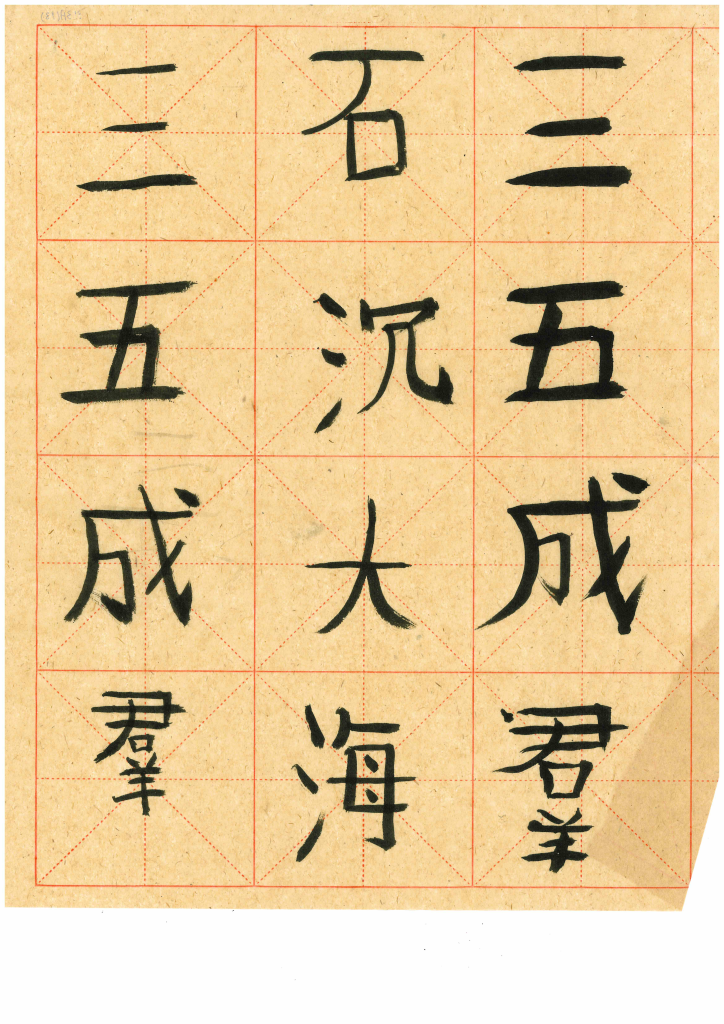 三五成羣
石沉大海
三五成羣